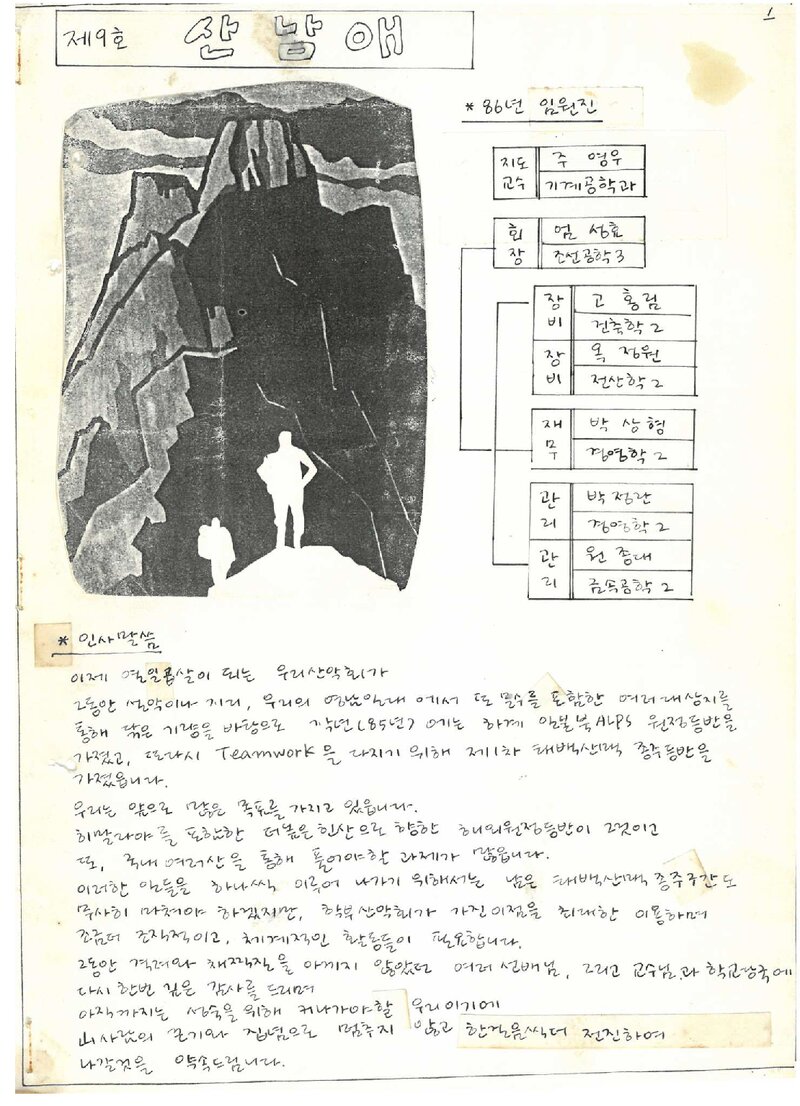 1
제9호 산남애
* 86년 임원진
지도교수 주영우
기계공학과
회장 엄성효
조선공학3
장비 고홍림
건축학2
장비 옥정원
전산학2
재무 박상형
경영학2
관리 박정란
경영학2
관리 원종대
금속공학2
* 인사말씀
이제 열일곱살이 되는 우리산악회가
그동안 설악이나 지리, 우리의 영남일대에서 또 빙수를 포함한 여러대상지를
통해 닦은 기량을 바탕으로 작년(85년)에는 하계 일본북ALPS 원정등반을
가졌고, 또다시 Teamwork을 다지기 위해 제1차 태백산맥 종주등반을
가졌읍니다.
우리는 앞으로 많은 목표를 가지고 있읍니다.
희말라야를 포함한 더높은 흰산으로 향한 해외원정등반이 그것이고
또, 국내 여러산을 통해 풀어야할 과제가 많읍니다.
이러한 일들을 하나씩 이루어 나가기 위해서는 남은 태백산맥 종주구간도
무사히 마쳐야 하겠지만, 학부산악회가 가진이점을 최대한 이용하며
조금더 조직적이고, 체계적인 활동들이 필요합니다.
그동안 격려와 채찍질을 아끼지 않았던 여러선배님, 그리고 교수님과 학교당국에
다시한번 깊은 감사를 드리며
아직까지는 성숙을 위해 커나가야할 우리이기에
山사람의 끈기와 집념으로 멈추지 않고 한걸음씩더 전진하여
나갈것을 약속드립니다.